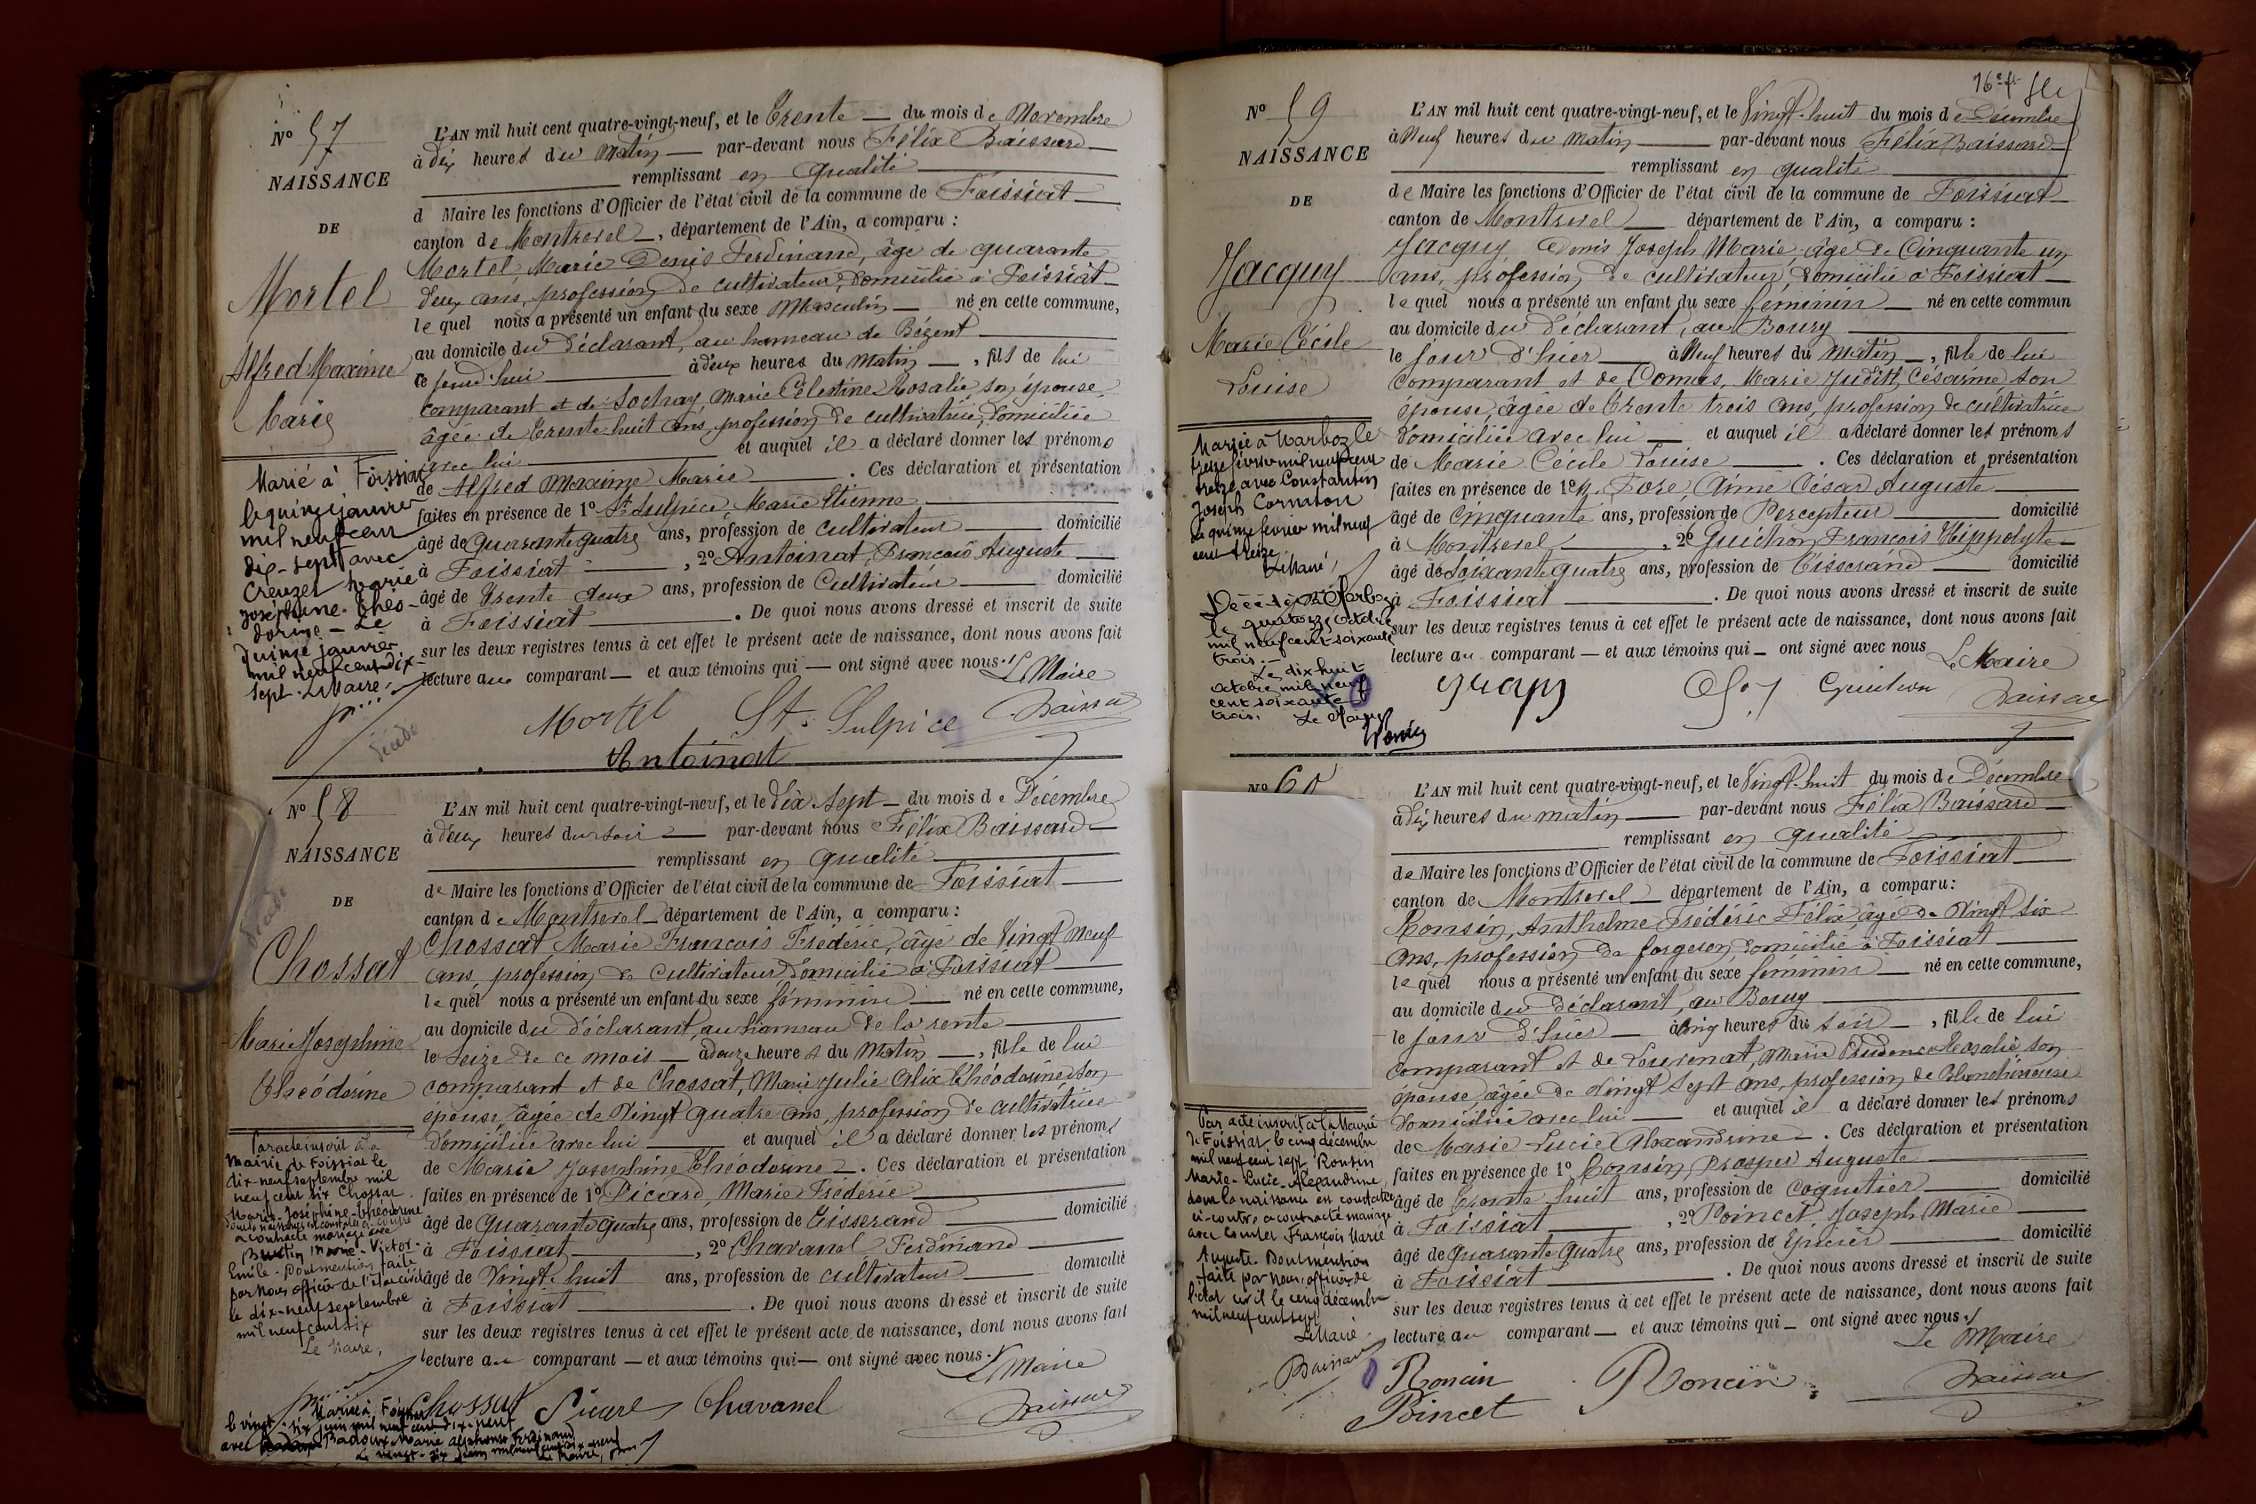 Nº 57
NAISSANCE
DE
Mortel
Alfred Maxime
Marie
Marié à Foissiat
le quinze janvier
mil neuf cent
dix-sept avec
Creuzet Marie
Joséphine Théo-
dorine - Le
quinze janvier
mil neuf cent dix-
sept. Le Maire,
L'AN mil huit cent quatre-vingt-neuf, et le Trente du mois de Novembre
à dix heures du matin par-devant nous Félix Baissard
remplissant en qualité
d Maire les fonctions d'Officier de l'état civil de la commune de Foissiat
canton de Montrevel, département de l'Ain, a comparu :
Mortel, Marie Denis Ferdinand, âgé de quarante
deux ans, profession de cultivateur, domicilié à Foissiat
lequel nous a présenté un enfant du sexe Masculin né en cette commune,
au domicile du déclarant, au hameau de Bézent
ce jourd'hui à deux heures du matin, fils de lui
comparant et de Sochay, Marie Célestine Rosalie, son épouse,
âgée de trente huit ans, profession de cultivatrice, domiciliée
avec lui et auquel il a déclaré donner les prénoms
de Alfred Maxime Marie. Ces déclaration et présentation
faites en présence de 1º St Sulpice, Marie Etienne
âgé de quarante quatre ans, profession de cultivateur domicilié
à Foissiat, 2º Antoinat, François Auguste
âgé de Trente deux ans, profession de Cultivateur domicilié
à Foissiat. De quoi nous avons dressé et inscrit de suite
sur les deux registres tenus à cet effet le présent acte de naissance, dont nous avons fait
lecture au comparant et aux témoins qui ont signé avec nous. Le Maire
Mortel St. Sulpice Baissard
Antoinat
Nº 58
NAISSANCE
DE
Chossat
Marie Joséphine
Théodorine
Par acte inscrit à la
Mairie de Foissiat le
dix-neuf septembre mil
neuf cent six Chossat
Marie-Joséphine-Théodorine
dont la naissance est constatée ci-contre
a contracté mariage avec
Buttin Marie-Victor-
Emile - Dont mention faite
par Nous officier de l'état civil
le dix-neuf septembre
mil neuf cent six
Le Maire,
L'AN mil huit cent quatre-vingt-neuf, et le dix sept du mois de Décembre
à deux heures du soir par-devant nous Félix Baissard
remplissant en qualité
de Maire les fonctions d'Officier de l'état civil de la commune de Foissiat
canton de Montrevel département de l'Ain, a comparu :
Chossat Marie François Frédéric, âgé de Vingt neuf
ans, profession de cultivateur domicilié à Foissiat
lequel nous a présenté un enfant du sexe féminin né en cette commune,
au domicile du déclarant, au hameau de la rente
le seize de ce mois à douze heures du Matin, fille de lui
comparant et de Chossat, Marie Julie Alix Théodorine, son
épouse, âgée de Vingt quatre ans, profession de cultivatrice
domiciliée avec lui et auquel il a déclaré donner les prénoms
de Marie Joséphine Théodorine. Ces déclaration et présentation
faites en présence de 1º Picard, Marie Frédéric
âgé de quarante quatre ans, profession de Tisserand domicilié
à Foissiat, 2º Chavanel Ferdinand
âgé de Vingt huit ans, profession de cultivateur domicilié
à Foissiat. De quoi nous avons dressé et inscrit de suite
sur les deux registres tenus à cet effet le présent acte de naissance, dont nous avons fait
lecture au comparant et aux témoins qui ont signé avec nous. Le Maire
Chossat Picard Chavanel Baissard
Mariée à Foissiat
le vingt-six juin mil neuf cent dix-neuf
avec Badoux Marie Alphonse Ferdinand
Le vingt-six juin mil neuf cent dix-neuf
Le Maire,
Nº 59
NAISSANCE
DE
Jacquy
Marie Cécile
Louise
Mariée à Marboz le
treize février mil neuf cent
treize avec Constantin
Joseph Cornaton
Le quinze février mil neuf
cent treize
Le Maire,
Décédée à Marboz
le quatorze octobre
mil neuf cent soixante
trois.-
Le dix-huit
octobre mil neuf
cent soixante
trois. Le Maire
L'AN mil huit cent quatre-vingt-neuf, et le Vingt-huit du mois de Décembre
à Neuf heures du matin par-devant nous Félix Baissard
remplissant en qualité
de Maire les fonctions d'Officier de l'état civil de la commune de Foissiat
canton de Montrevel département de l'Ain, a comparu :
Jacquy Denis Joseph Marie, âgé de Cinquante un
ans, profession de cultivateur, domicilié à Foissiat
lequel nous a présenté un enfant du sexe féminin né en cette commun
au domicile du déclarant, au Bourg
le jour d'hier à Neuf heures du matin, fille de lui
comparant et de Comas, Marie Judith Césarine, son
épouse, âgée de trente trois ans, profession de cultivatrice
domiciliée avec lui et auquel il a déclaré donner les prénoms
de Marie Cécile Louise. Ces déclaration et présentation
faites en présence de 1º M. Fore, Aimé César Auguste
âgé de cinquante ans, profession de Percepteur domicilié
à Montrevel, 2º Guichon, François Hippolyte
âgé de soixante quatre ans, profession de Tisserand domicilié
à Foissiat. De quoi nous avons dressé et inscrit de suite
sur les deux registres tenus à cet effet le présent acte de naissance, dont nous avons fait
lecture au comparant et aux témoins qui ont signé avec nous Le Maire
Guichon Baissard
Nº 60
L'AN mil huit cent quatre-vingt-neuf, et le Vingt-huit du mois de Décembre
à dix heures du matin par-devant nous Félix Baissard
remplissant en qualité
de Maire les fonctions d'Officier de l'état civil de la commune de Foissiat
canton de Montrevel département de l'Ain, a comparu :
Ronsin, Anthelme Frédéric Félix, âgé de Vingt six
ans, profession de forgeron, domicilié à Foissiat
lequel nous a présenté un enfant du sexe féminin né en cette commune,
au domicile du déclarant, au Bourg
le jour d'hier à cinq heures du soir, fille de lui
comparant et de Laurenat, Marie Prudence Rosalie son
épouse âgée de Vingt sept ans, profession de Blanchisseuse
domiciliée avec lui et auquel il a déclaré donner les prénoms
de Marie Lucie Alexandrine. Ces déclaration et présentation
faites en présence de 1º Ronsin, Prosper Auguste
âgé de trente huit ans, profession de Coquetier domicilié
à Foissiat, 2º Poincet Joseph Marie
âgé de quarante quatre ans, profession de épicier domicilié
à Foissiat. De quoi nous avons dressé et inscrit de suite
sur les deux registres tenus à cet effet le présent acte de naissance, dont nous avons fait
lecture au comparant et aux témoins qui ont signé avec nous.
Le Maire
Par acte inscrit à la Mairie
de Foissiat le cinq décembre
mil neuf cent sept Ronsin
Marie-Lucie-Alexandrine
dont la naissance est constatée
ci-contre a contracté mariage
avec François Marie
Auguste. Dont mention
faite par Nous, officier de
l'état civil le cinq décembre
mil neuf cent sept
Le Maire
Baissard
Roncin Roncin Baissard
Poincet